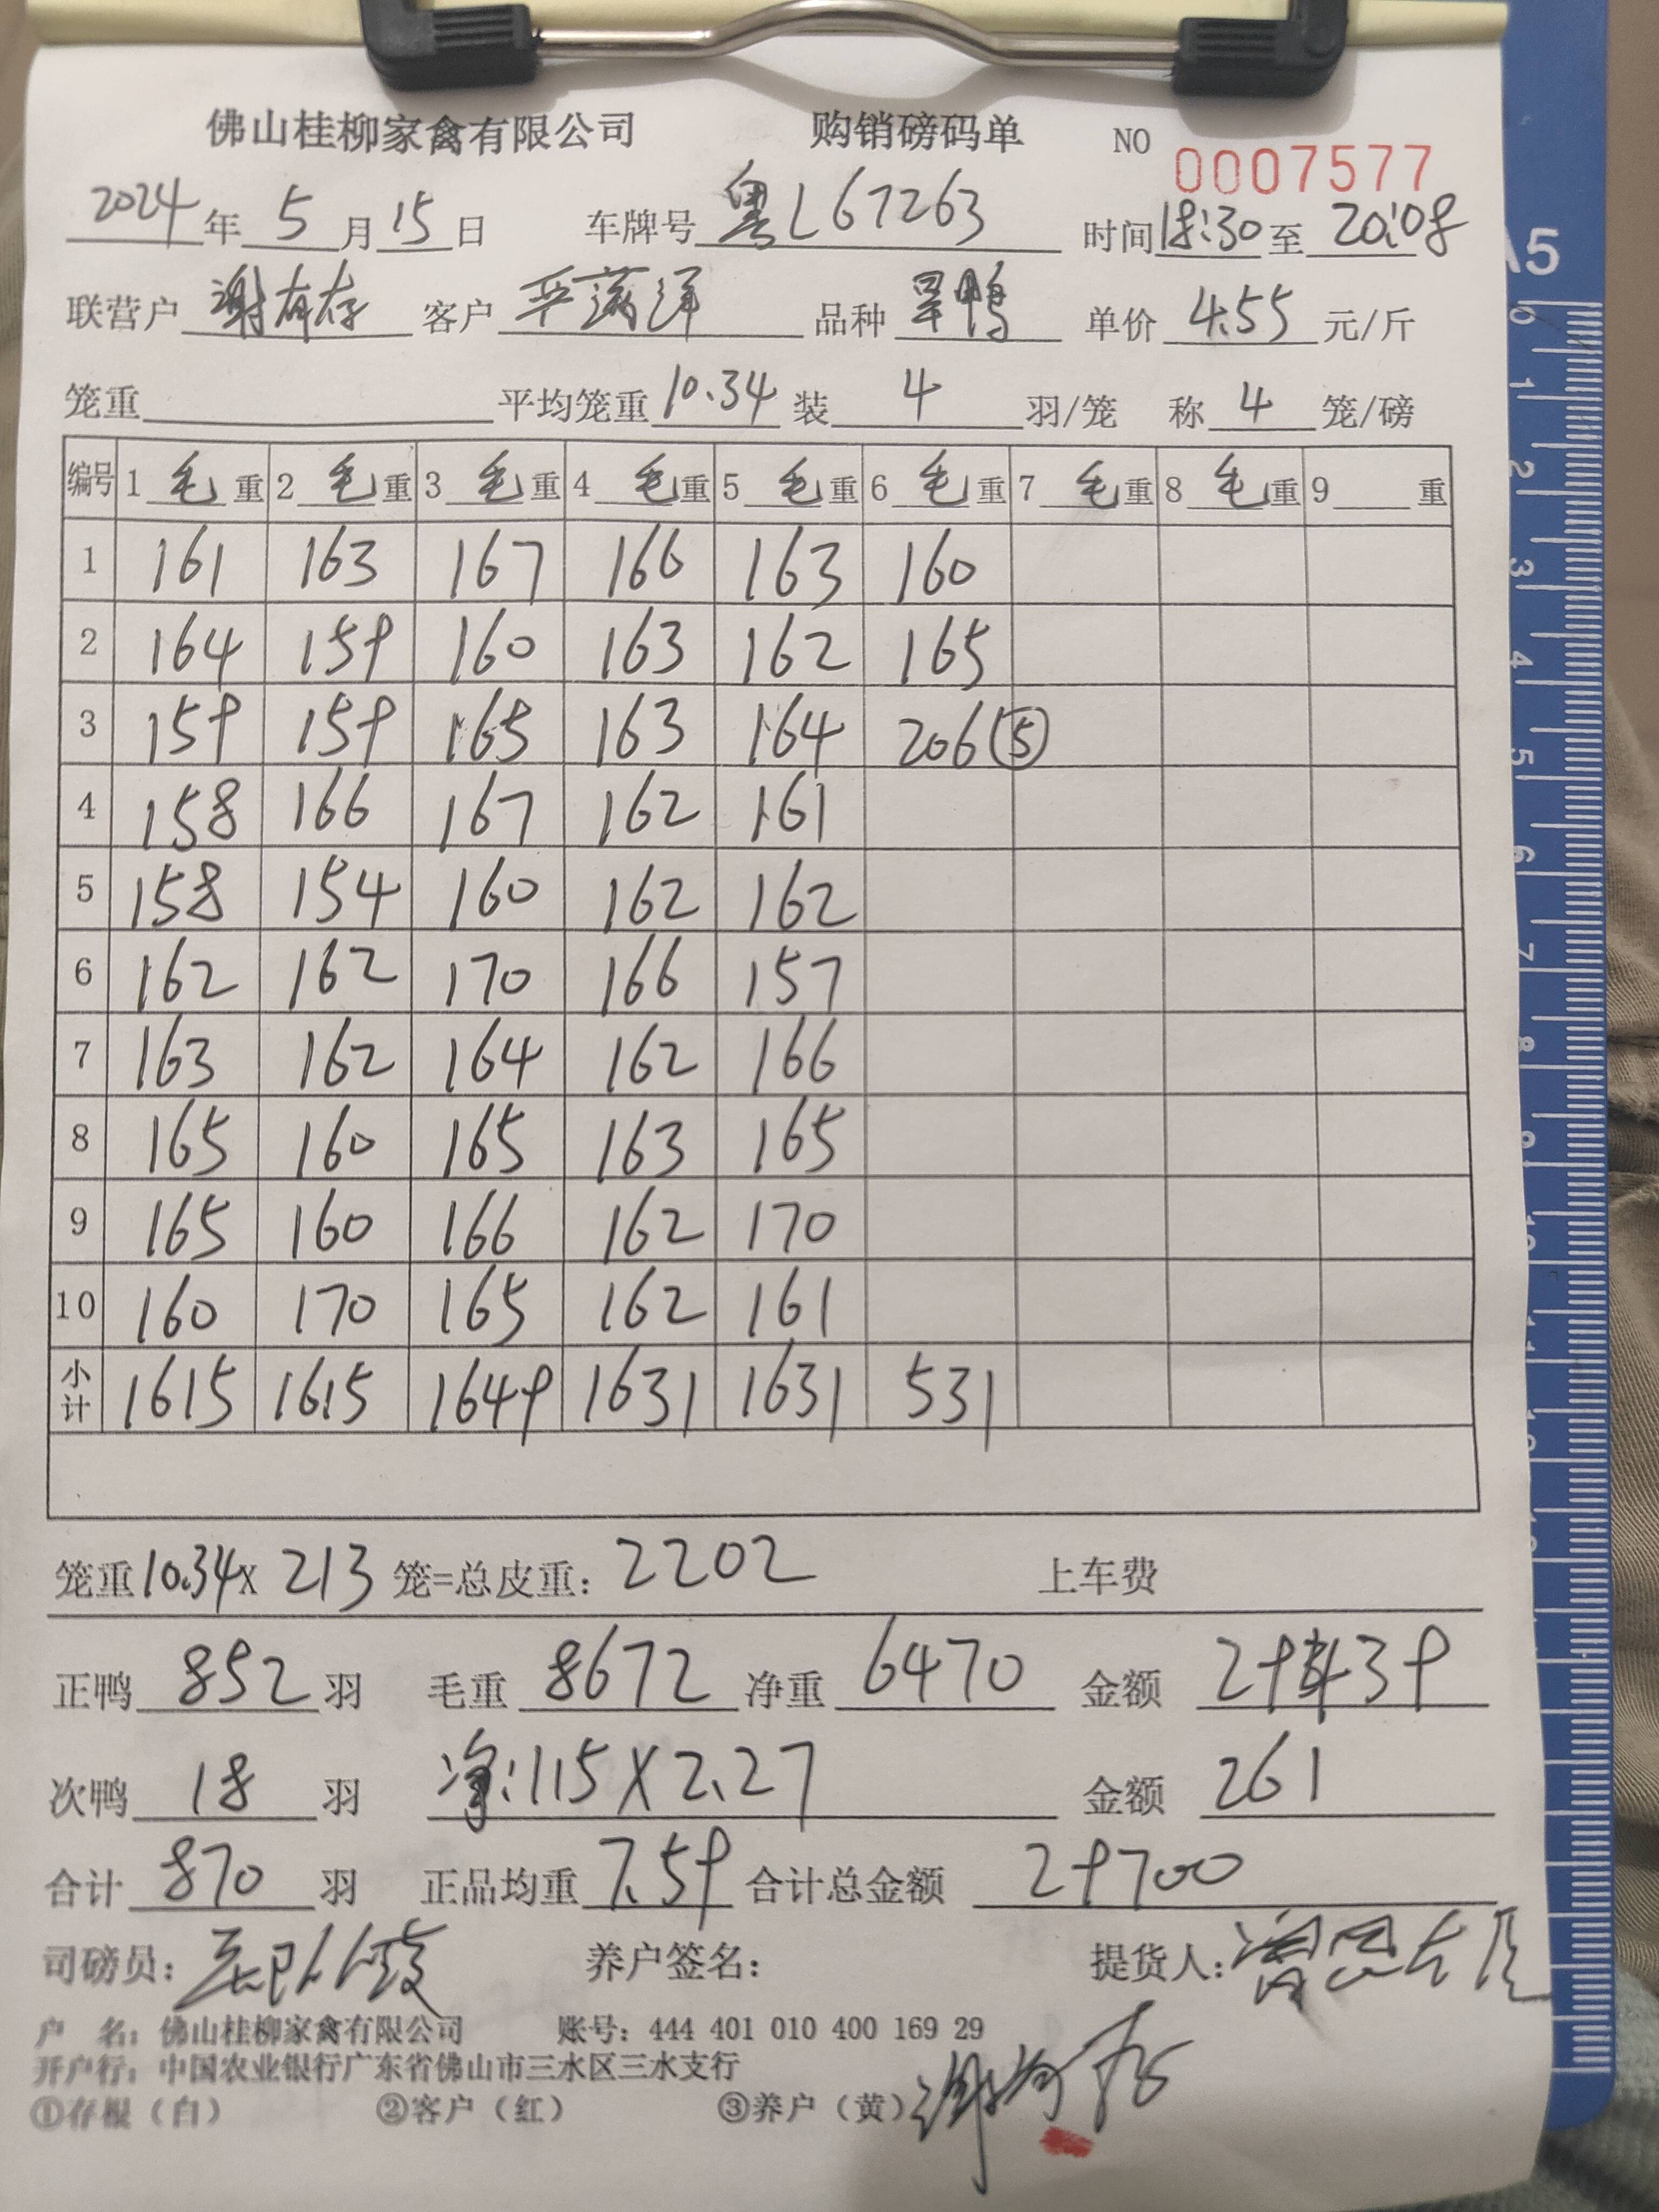 佛山桂柳家禽有限公司 购销磅码单 NO 0007577
2024年5月15日 车牌号 粤L67263 时间18:30至20:08
联营户 谢有存 客户 品种 旱鸭 单价 4.55 元/斤
笼重 平均笼重 10.34 装 4 羽/笼 称 4 笼/磅
编号 1 毛重 2 毛重 3 毛重 4 毛重 5 毛重 6 毛重 7 毛重 8 毛重 9 重
1 161 163 167 166 163 160
2 164 159 160 163 162 165
3 159 159 165 163 164 206⑤
4 158 166 167 162 161
5 158 154 160 162 162
6 162 162 170 166 157
7 163 162 164 162 166
8 165 160 165 163 165
9 165 160 166 162 170
10 160 170 165 162 161
小计 1615 1615 1649 1631 1631 531
笼重10.34x 213 笼=总皮重: 2202 上车费
正鸭 852 羽 毛重 8672 净重 6470 金额 29439
次鸭 18 羽 净:115X2.27 金额 261
合计 870 羽 正品均重 7.59 合计总金额 29700
司磅员: 养户签名: 提货人:
户 名: 佛山桂柳家禽有限公司 账号: 444 401 010 400 169 29
开户行: 中国农业银行广东省佛山市三水区三水支行
①存根(白) ②客户(红) ③养户(黄) 谢有存
A5
0 1 2 3 4 5 6 7 8 9